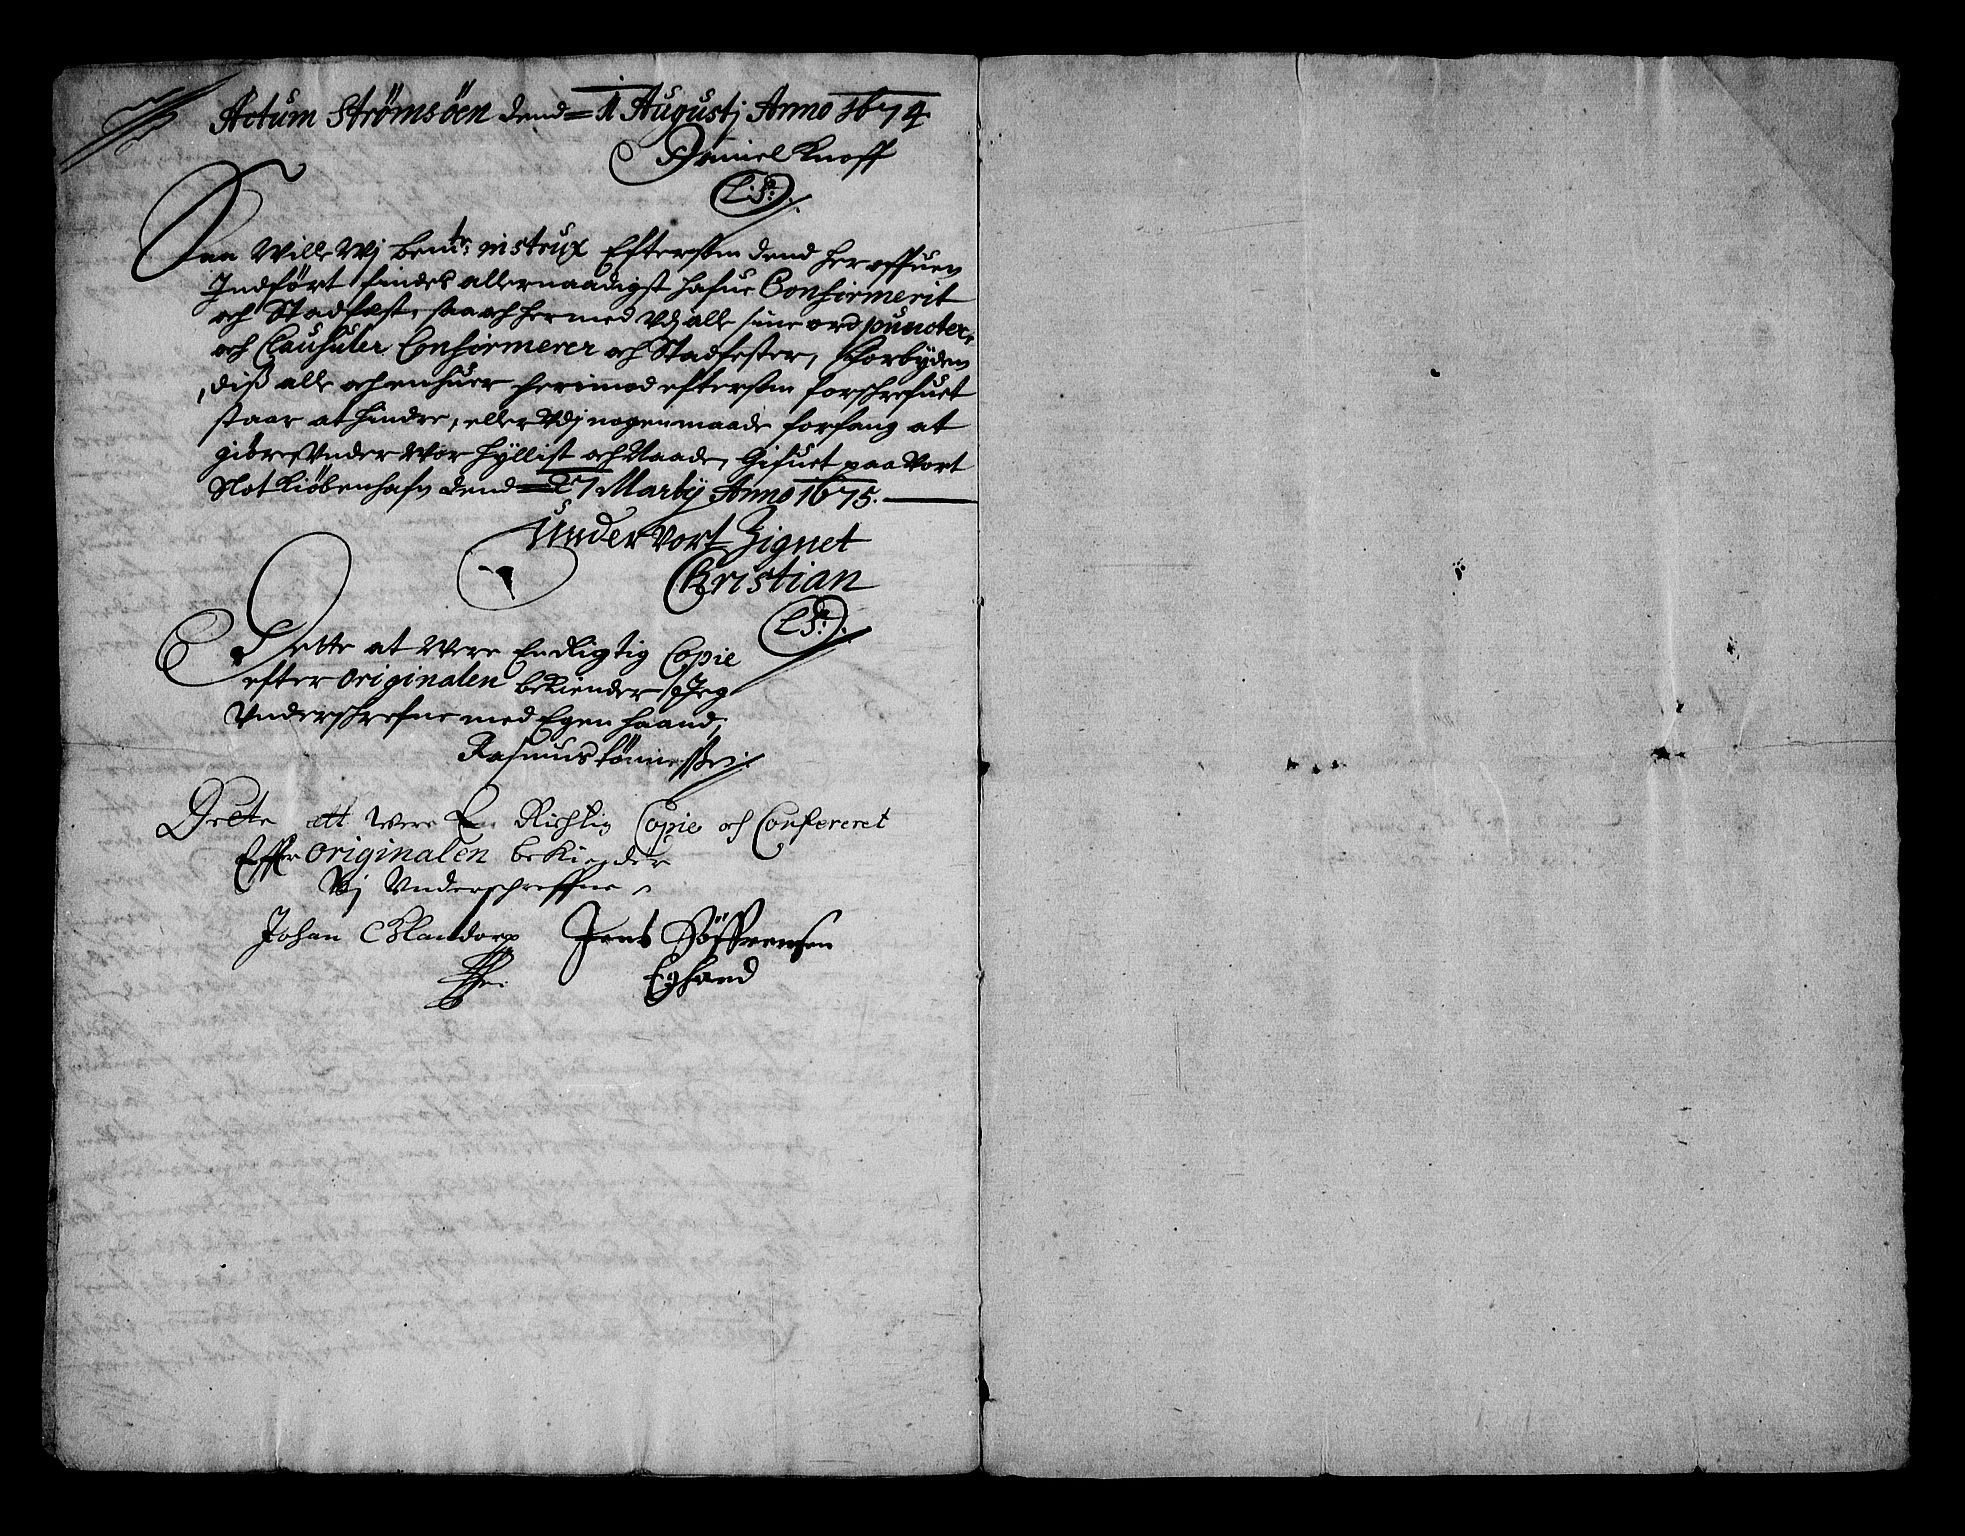 Actum Strømsöen dend 11 Augustj Anno 1674
Daniel Knoff
L:S:
Saa Wille Wj bemte: instrux Eftersom dend her offuen
Indført findes allernaadigst hafue Confirmerit
och Stadfest, saa och hermed Vdj alle sine ord puncter
och Clausuler Confirmerer och Stadfester, Forbydendis
alle och enhuer herimod eftersom forschrefuet
staar at hindre, eller Vdj nogen maade forfang at
giöre, Vnder Wor Hyllist och Naade, Gifuet paa Vort
Slot Kiöbenhafn dend 27 Martij Anno 1675.
Under Vort Zignet
Christian
L:S:
Dette at Were En Rigtig Copie
efter originalen bekiender Jeg
Vnderschrefne med Egen haand,
Rasmus Tönnessen
Dette att were En Richtig Copie och Confereret
Effter originalen bekiender
Wj Vnderschreffne
Johan Blandorp Jens Söffrensen
Eghand